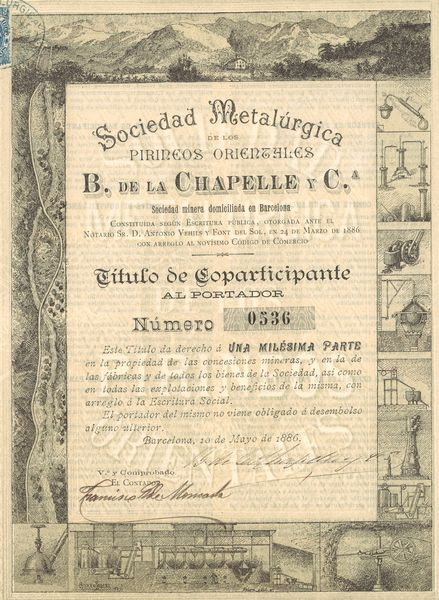 Sociedad Metalúrgica
DE LOS
PIRINEOS ORIENTALES
B. DE LA CHAPELLE Y C.ª
Sociedad minera domiciliada en Barcelona
CONSTITUIDA SEGÚN ESCRITURA PÚBLICA, OTORGADA ANTE EL
NOTARIO SR. D. ANTONIO VEHILS Y FONT DEL SOL, EN 24 DE MARZO DE 1886
CON ARREGLO AL NOVÍSIMO CÓDIGO DE COMERCIO
Título de Coparticipante
AL PORTADOR
Número 0536
Este Título da derecho á UNA MILÉSIMA PARTE
en la propiedad de las concesiones mineras, y en la de
las fábricas y de todos los bienes de la Sociedad, así como
en todas las explotaciones y beneficios de la misma, con
arreglo á la Escritura Social.
El portador del mismo no viene obligado á desembolso
alguno ulterior.
Barcelona, 10 de Mayo de 1886.
V.º y Comprobado
EL CONTADOR